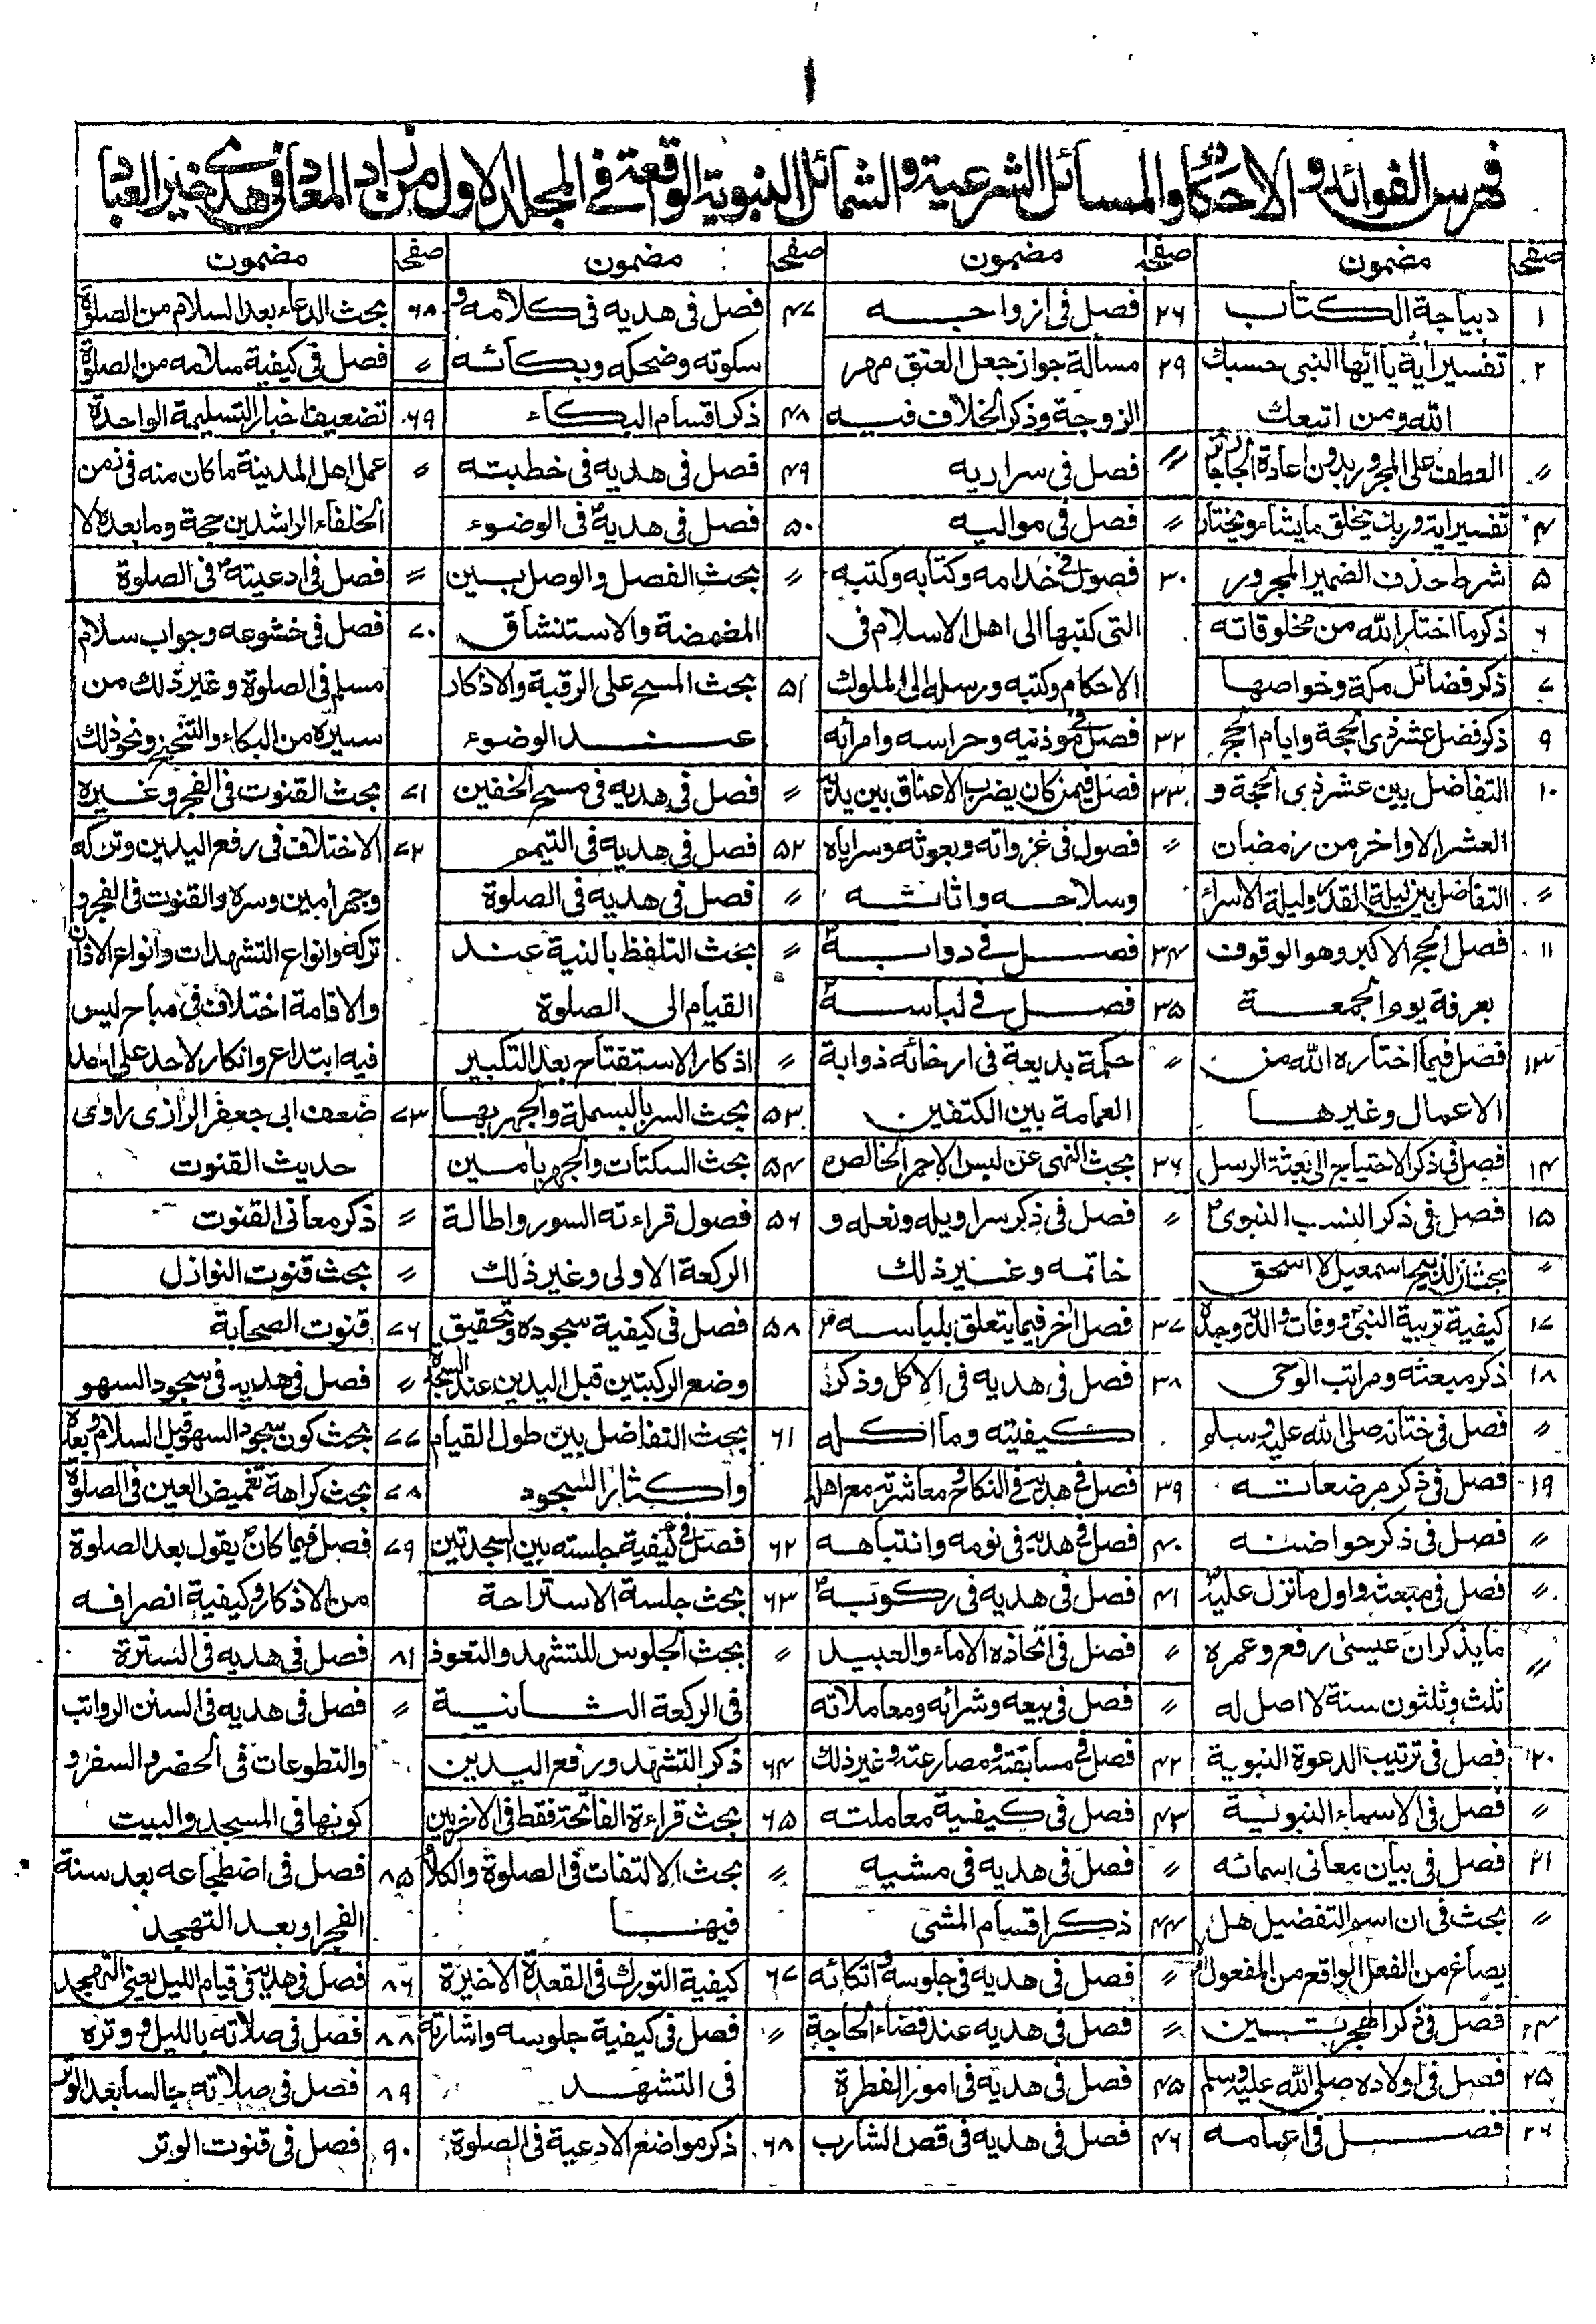 ١
فهرس الفوائد والاحكام والمسائل الشرعية والشمائل النبوية الواقعة في المجلد الاول من زاد المعاد في هدى خير العباد
صفحہ مضمون
١ ديباجة الكتاب
٢ تفسير اية يا ايها النبى حسبك
الله ومن اتبعك
〃 العطف على المجرور بدون اعادة الجار جائز
٤ تفسير اية وربك يخلق ما يشاء ويختار
٥ شرط حذف الضمير المجرور
٦ ذكر ما اختار الله من مخلوقاته
٧ ذكر فضائل مكة وخواصها
٩ ذكر فضل عشر ذى الحجة وايام الحج
١٠ التفاضل بين عشر ذى الحجة و
العشر الاواخر من رمضان
〃 التفاضل بين ليلة القدر وليلة الاسراء
١١ فصل الحج الاكبر وهو الوقوف
بعرفة يوم الجمعة
١٣ فصل فيما اختاره الله من
الاعمال وغيرها
١٤ فصل فى ذكر الاحتياج الى بعثة الرسل
١٥ فصل فى ذكر النسب النبوى
〃 بحث ان الذبيح اسمعيل لا اسحق
١٧ كيفية تربية النبى ووفات والده وجده
١٨ ذكر مبعثه ومراتب الوحى
〃 فصل فى ختانه صلى الله عليه وسلم
١٩ فصل فى ذكر مرضعاته
〃 فصل فى ذكر حواضنه
〃 فصل فى مبعثه واول ما نزل عليه
〃 ما يذكر ان عيسى رفع وعمره
ثلث وثلثون سنة لا اصل له
٢٠ فصل فى ترتيب الدعوة النبوية
〃 فصل فى الاسماء النبوية
٢١ فصل فى بيان معانى اسمائه
〃 بحث فى ان اسم التفضيل هل
يصاغ من الفعل الواقع من المفعول
٢٤ فصل فى ذكر الهجرتين
٢٥ فصل فى اولاده صلى الله عليه وسلم
٢٦ فصل فى اعمامه
صفحہ مضمون
٢٦ فصل فى ازواجه
٢٩ مسألة جواز جعل العتق مهر
الزوجة وذكر الخلاف فيه
〃 فصل فى سراريه
〃 فصل فى مواليه
٣٠ فصول فى خدامه وكتابه وكتبه
التى كتبها الى اهل الاسلام فى
الاحكام وكتبه ورسله الى الملوك
٣٢ فصل فى مؤذنيه وحراسه وامرائه
٣٣ فصل فيمن كان يضرب الاعناق بين يديه
〃 فصول فى غزواته وبعوثه وسراياه
وسلاحه واثاثه
٣٤ فصل فى دوابه
٣٥ فصل فى لباسه
〃 حكمة بديعة فى ارخائه ذوابة
العمامة بين الكتفين
٣٦ بحث النهى عن لبس الاحمر الخالص
〃 فصل فى ذكر سراويله ونعله و
خاتمه وغير ذلك
٣٧ فصل اخر فيما يتعلق بلباسه
٣٨ فصل فى هديه فى الاكل وذكر
كيفيته وما اكله
٣٩ فصل فى هديه فى النكاح ومعاشرته مع اهله
٤٠ فصل فى هديه فى نومه وانتباهه
٤١ فصل فى هديه فى ركوبه
〃 فصل فى اتخاذه الاماء والعبيد
〃 فصل فى بيعه وشرائه ومعاملاته
٤٢ فصل فى مسابقته ومصارعته وغير ذلك
٤٣ فصل فى كيفية معاملته
〃 فصل فى هديه فى مشيه
٤٤ ذكر اقسام المشى
〃 فصل فى هديه فى جلوسه واتكائه
〃 فصل فى هديه عند قضاء الحاجة
٤٥ فصل فى هديه فى امور الفطرة
٤٦ فصل فى هديه فى قص الشارب
صفحہ مضمون
٤٧ فصل فى هديه فى كلامه و
سكوته وضحكه وبكائه
٤٨ ذكر اقسام البكاء
٤٩ فصل فى هديه فى خطبته
٥٠ فصل فى هديه فى الوضوء
〃 بحث الفصل والوصل بين
المضمضة والاستنشاق
٥١ بحث المسح على الرقبة والاذكار
عند الوضوء
〃 فصل فى هديه فى مسح الخفين
٥٢ فصل فى هديه فى التيمم
〃 فصل فى هديه فى الصلوة
〃 بحث التلفظ بالنية عند
القيام الى الصلوة
〃 اذكار الاستفتاح بعد التكبير
٥٣ بحث السر بالبسملة والجهر بها
٥٤ بحث السكتات والجهر بامين
٥٦ فصول قراءته السور واطالة
الركعة الاولى وغير ذلك
٥٨ فصل فى كيفية سجوده وتحقيق
وضع الركبتين قبل اليدين عند السجدة
٦١ بحث التفاضل بين طول القيام
واكثار السجود
٦٢ فصل فى كيفية جلسته بين السجدتين
٦٣ بحث جلسة الاستراحة
〃 بحث الجلوس للتشهد والتعوذ
فى الركعة الثانية
٦٤ ذكر التشهد ورفع اليدين
٦٥ بحث قراءة الفاتحة فقط فى الاخريين
〃 بحث الالتفات فى الصلوة والكلام
فيها
٦٧ كيفية التورك فى القعدة الاخيرة
〃 فصل فى كيفية جلوسه واشارته
فى التشهد
٦٨ ذكر مواضع الادعية فى الصلوة
صفحہ مضمون
٦٨ بحث الدعاء بعد السلام من الصلوة
〃 فصل فى كيفية سلامه من الصلوة
٦٩ تضعيف اخبار التسليمة الواحدة
〃 عمل اهل المدينة ما كان منه فى زمن
الخلفاء الراشدين حجة وما بعده لا
〃 فصل فى ادعيته فى الصلوة
٧٠ فصل فى خشوعه وجواب سلام
مسلم فى الصلوة وغير ذلك من
سيره من البكاء والتنحنح ونحو ذلك
٧١ بحث القنوت فى الفجر وغيره
٧٢ الاختلاف فى رفع اليدين وتركه
وجهر امين وسره والقنوت فى الفجر و
تركه وانواع التشهدات وانواع الاذان
والاقامة اختلاف فى مباح ليس
فيه ابتداع وانكار لاحد على احد
٧٣ ضعف ابى جعفر الرازى راوى
حديث القنوت
〃 ذكر معانى القنوت
〃 بحث قنوت النوازل
٧٦ قنوت الصحابة
〃 فصل فى هديه فى سجود السهو
٧٧ بحث كون سجود السهو قبل السلام وبعده
٧٨ بحث كراهة تغميض العين فى الصلوة
٧٩ فصل فيما كان يقول بعد الصلوة
من الاذكار وكيفية انصرافه
٨١ فصل فى هديه فى السترة
〃 فصل فى هديه فى السنن الرواتب
والتطوعات فى الحضر والسفر و
كونها فى المسجد والبيت
٨٥ فصل فى اضطجاعه بعد سنة
الفجر او بعد التهجد
٨٦ فصل فى هديه فى قيام الليل يعنى التهجد
٨٨ فصل فى صلاته بالليل ووتره
٨٩ فصل فى صلاته جالسا بعد الوتر
٩٠ فصل فى قنوت الوتر